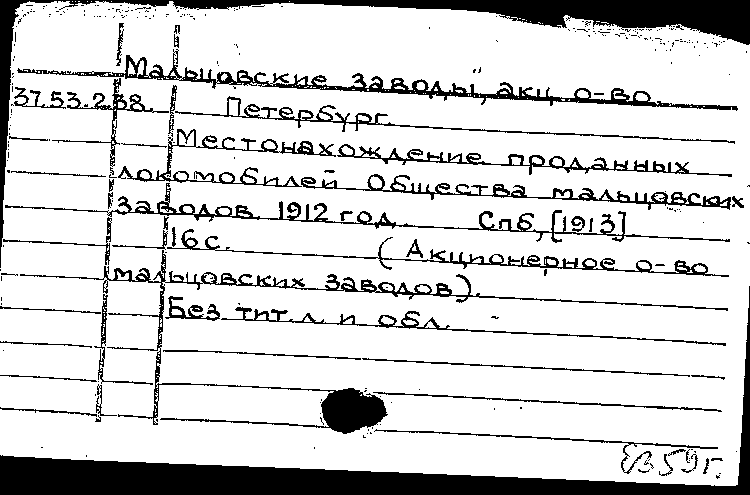 Мальцовские заводы", акц. о-во.
37.53.238. Петербург.
Местонахождение проданных
локомобилей Общества мальцовских
заводов. 1912 год. Спб, [1913].
16 с. (Акционерное о-во
мальцовских заводов).
Без тит. л. и обл.
59 г.